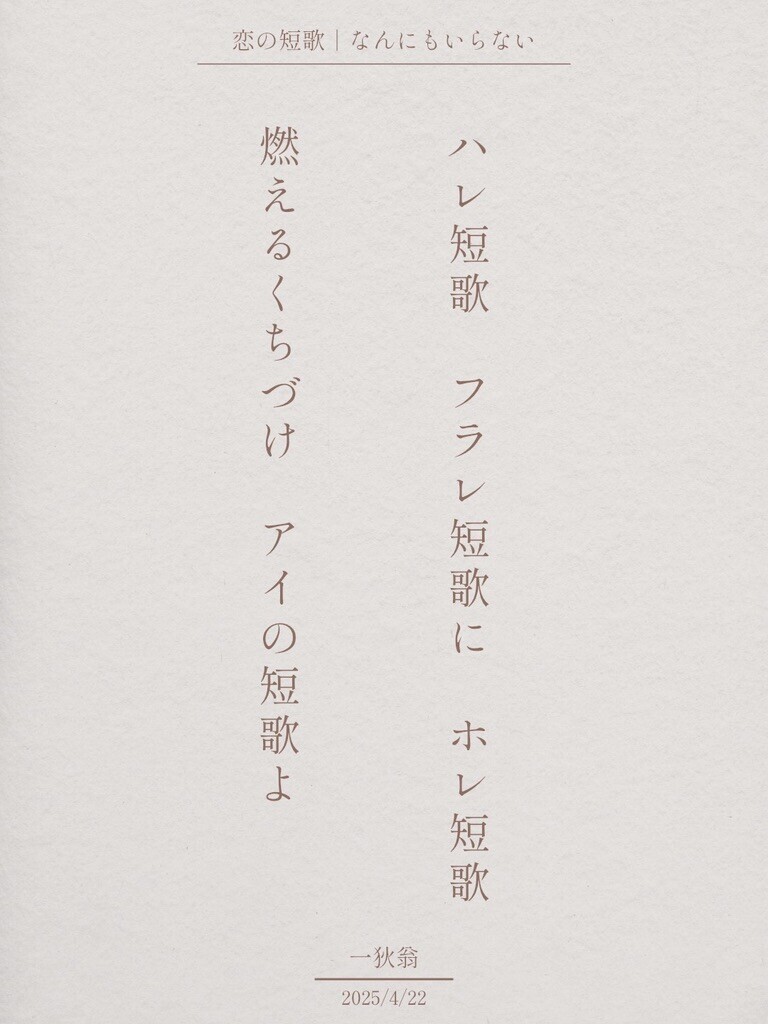 恋の短歌｜なんにもいらない
ハレ短歌　フラレ短歌に　ホレ短歌
燃えるくちづけ　アイの短歌よ
一狄翁
2025/4/22